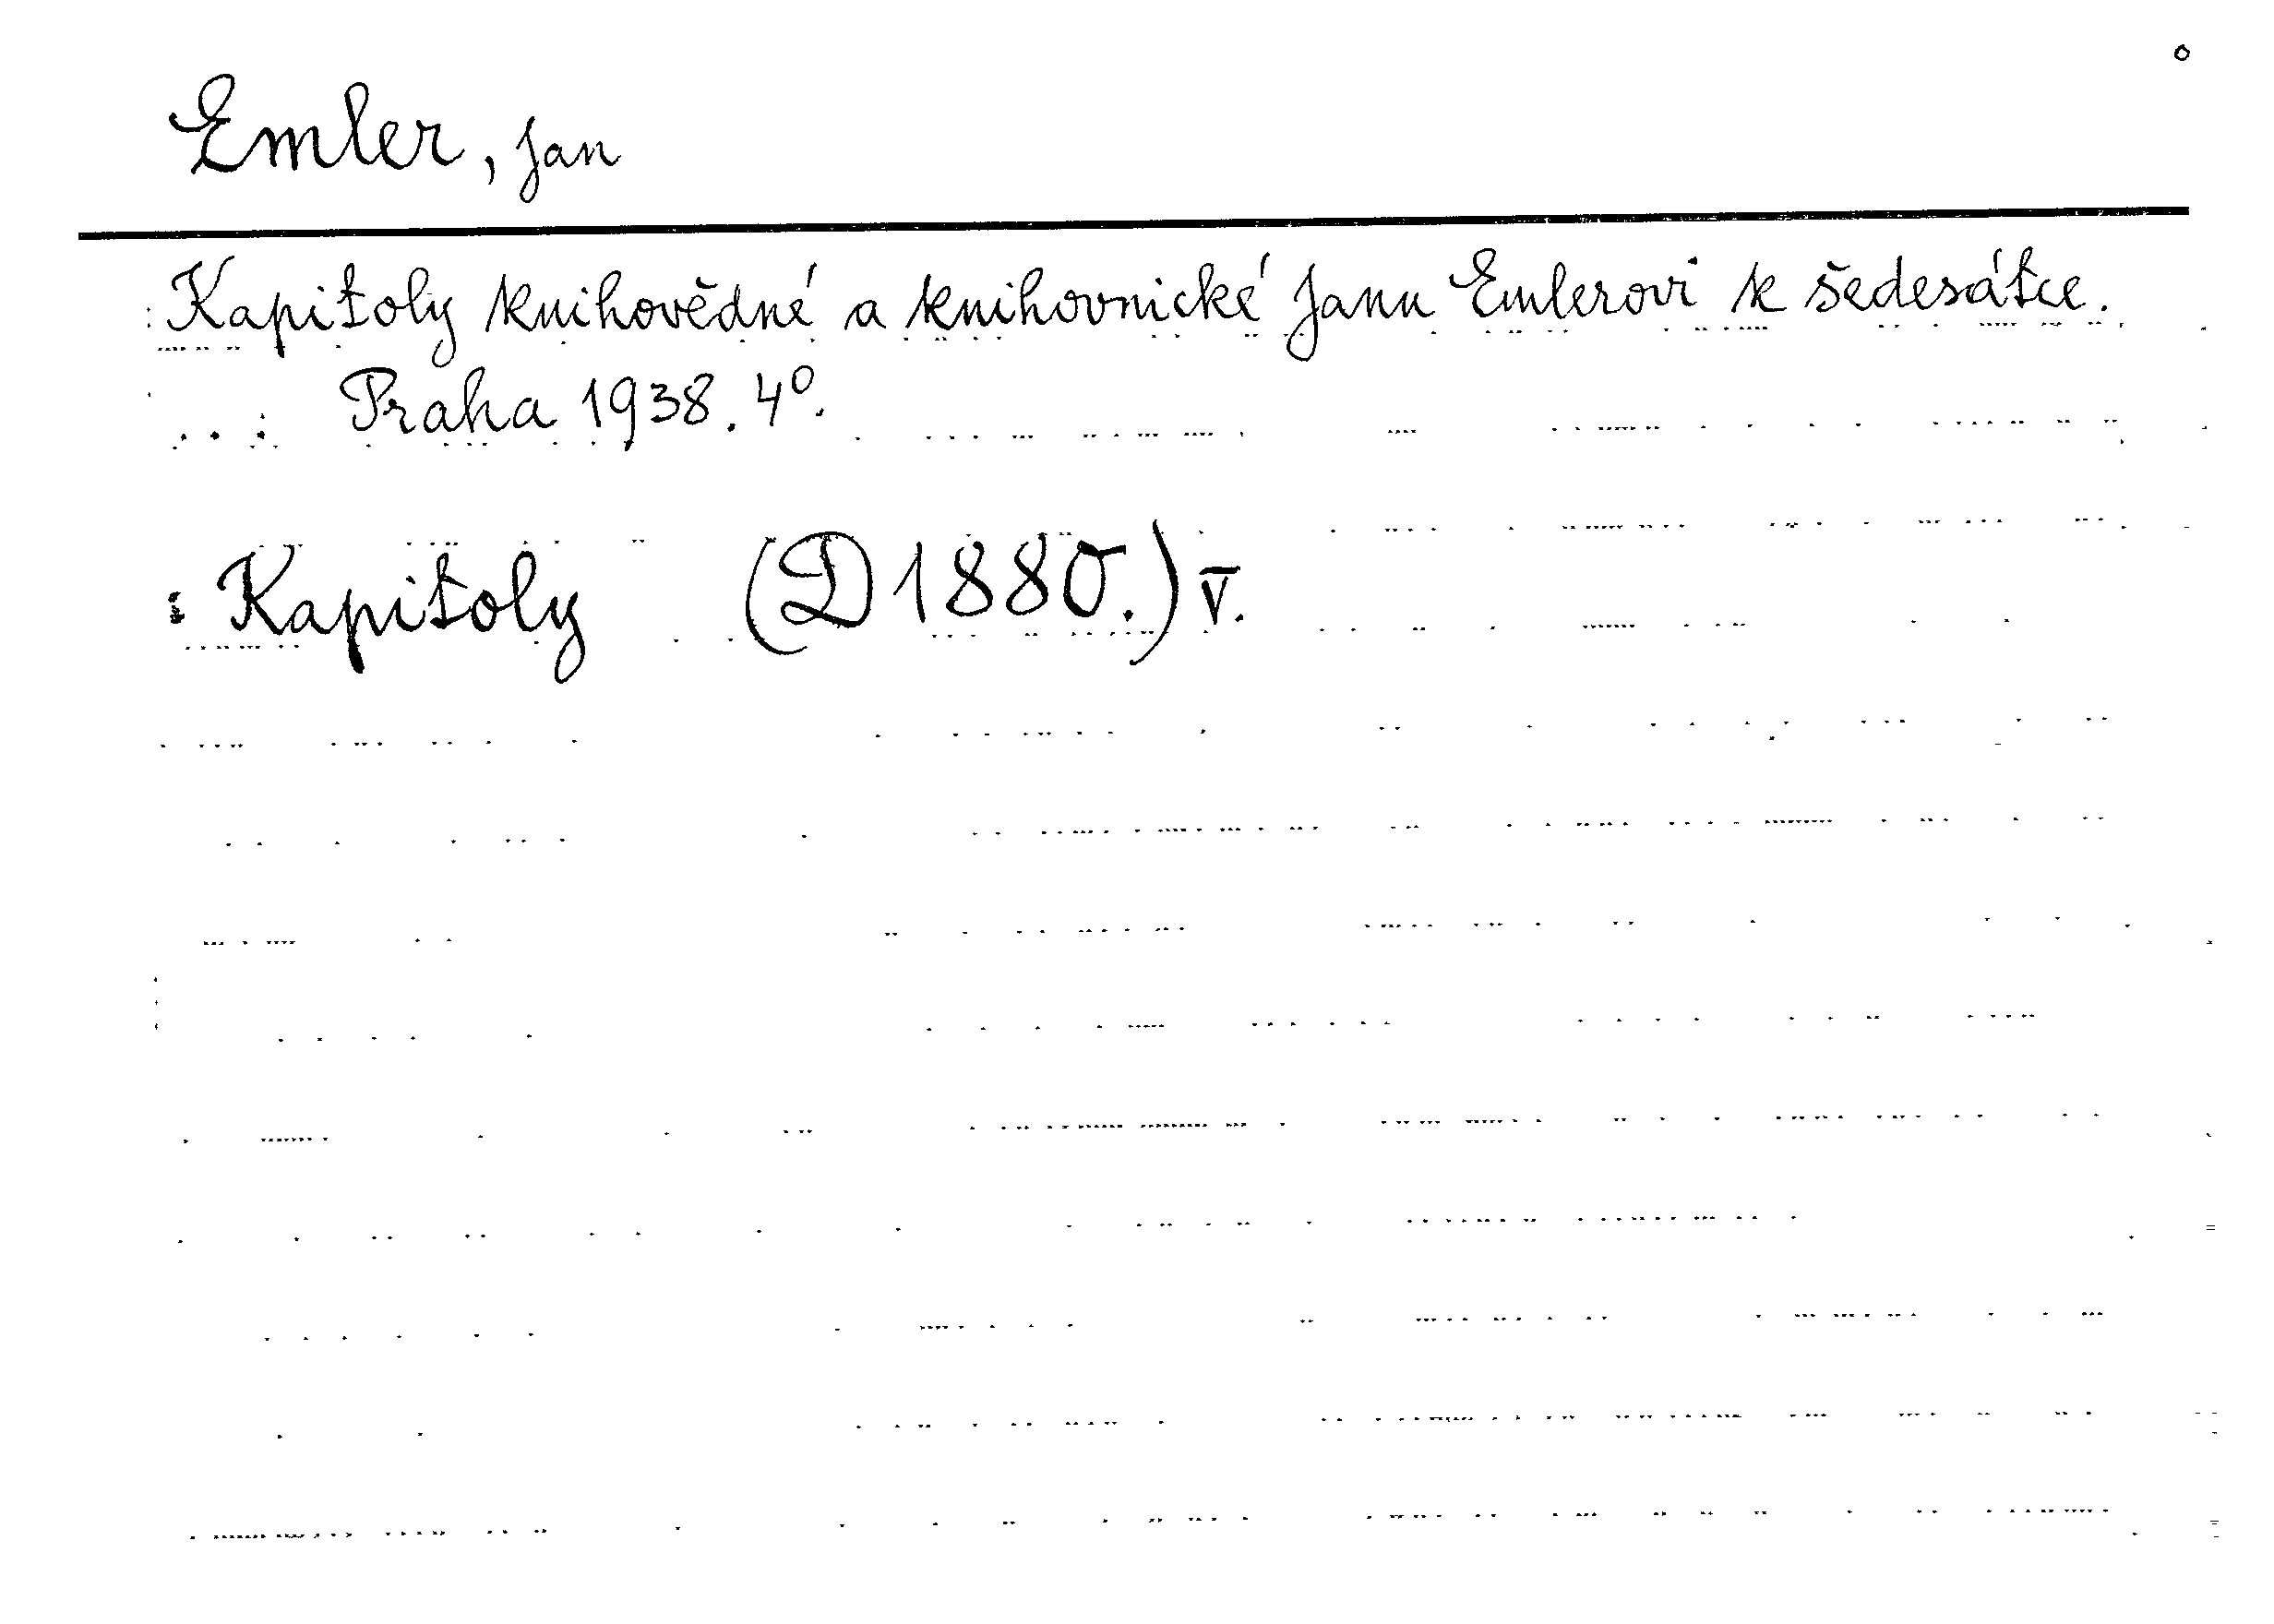 Emler, Jan
Kapitoly knihovědné a knihovnické Janu Emlerovi k šedesátce.
Praha 1938. 4°.
: Kapitoly (D 1880.) v.